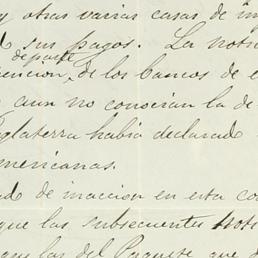 y otras varias casas de im
sus pagos. La noti
de parte
tencion, de los bancos de e
aun no conocian la de
glaterra habia declarado
mericanas.
ad de inaccion en esta co
que las subsecuentes noti
las del Paquete que d